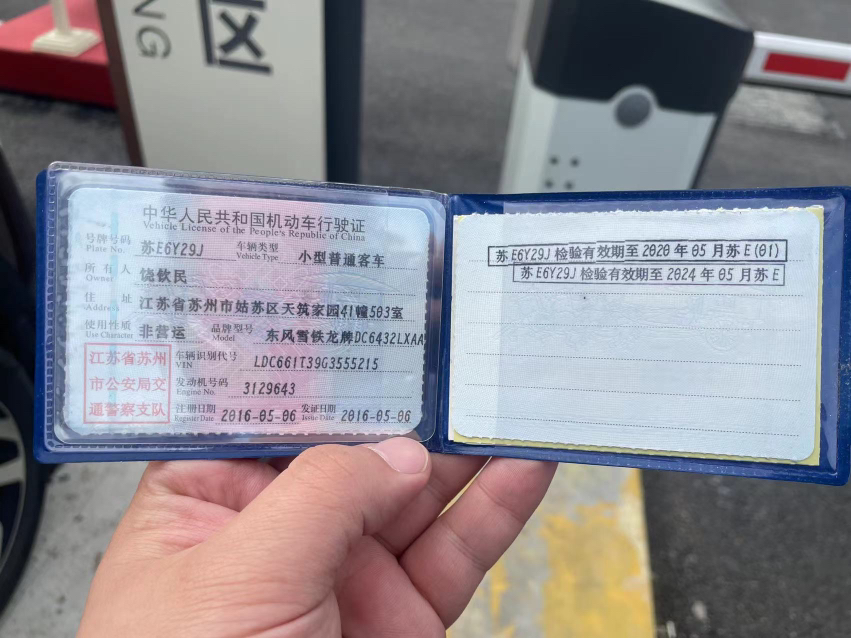 区
NG
中华人民共和国机动车行驶证
Vehicle License of the People's Republic of China
号牌号码 Plate No. 苏E6Y29J 车辆类型 Vehicle Type 小型普通客车
所有人 Owner 饶钦民
住址 Address 江苏省苏州市姑苏区天筑家园41幢503室
使用性质 Use Character 非营运 品牌型号 Model 东风雪铁龙牌DC6432LXAA
江苏省苏州
市公安局交
通警察支队
车辆识别代号 VIN LDC661T39G3555215
发动机号码 Engine No. 3129643
注册日期 Register Date 2016-05-06 发证日期 Issue Date 2016-05-06
苏E6Y29J 检验有效期至 2020 年 05 月苏 E(01)
苏 E6Y29J 检验有效期至 2024 年 05 月苏 E